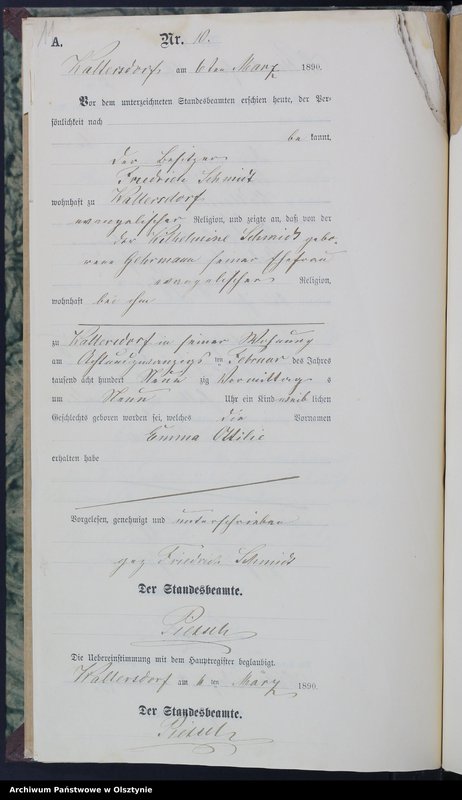 11
A.
Nr. 10.
Kallersdorf, am 6ten März 1890.
Vor dem unterzeichneten Standesbeamten erschien heute, der Per=
sönlichkeit nach
be kannt,
der Besitzer
Friedrich Schmidt
wohnhaft zu Kallersdorf
evangelischer Religion, und zeigte an, daß von der
der Wilhelmine Schmidt gebo-
rene Gehrmann seiner Ehefrau
evangelischer Religion,
wohnhaft bei ihm
zu Kallersdorf in seiner Wohnung
am Achtundzwanzigs ten Februar des Jahres
tausend acht hundert Neun zig Vormittag s
um Neun Uhr ein Kind weib lichen
Geschlechts geboren worden sei, welches die Vornamen
Emma Ottilie
erhalten habe
Vorgelesen, genehmigt und unterschrieben
gez Friedrich Schmidt
Der Standesbeamte.
Die Uebereinstimmung mit dem Hauptregister beglaubigt.
Kallersdorf am 6 ten März 1890.
Der Standesbeamte.
Archiwum Państwowe w Olsztynie